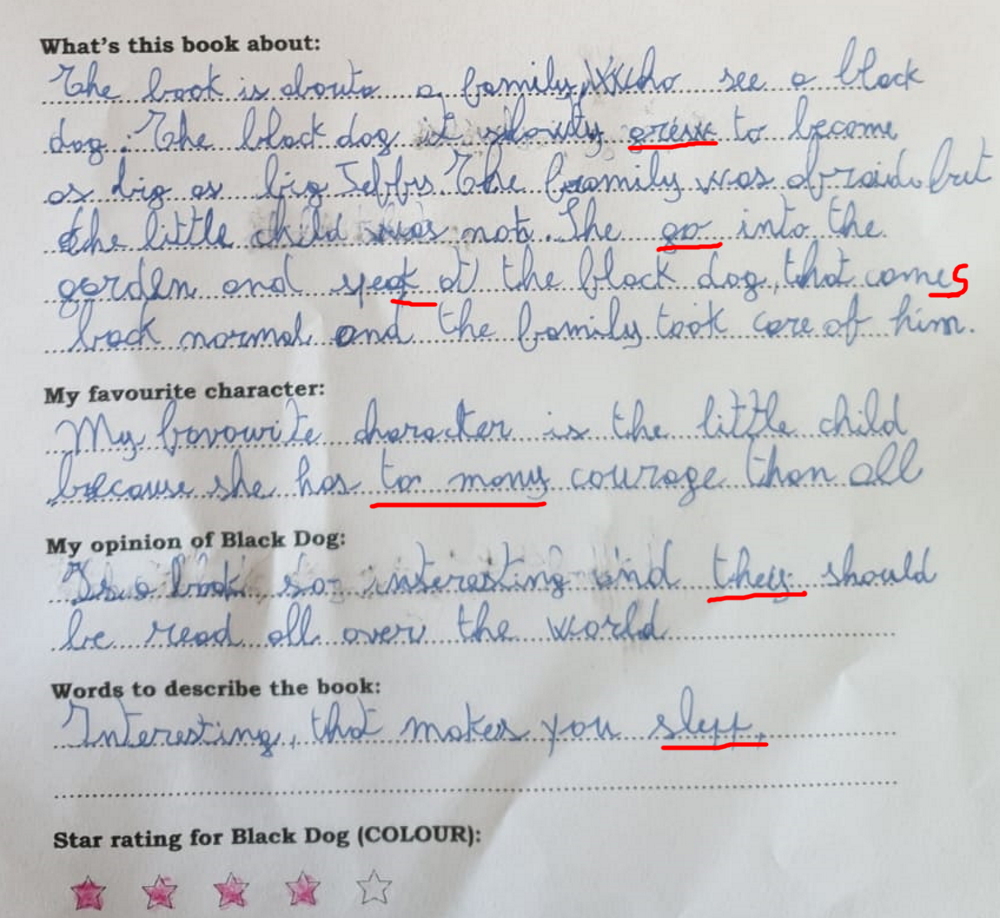 What's this book about:
The book is about a family, Who see a black
dog. The black dog it slowly grew to become
as big as big Jeffy. The family was afraid, but
the little child was not. She go into the
garden and speak at the black dog, that comes
back normal and the family took care of him.
My favourite character:
My favourite character is the little child
because she has to many courage than all
My opinion of Black Dog:
Is a book so interesting and they should
be read all over the world
Words to describe the book:
Interesting, that makes you
Star rating for Black Dog (COLOUR):